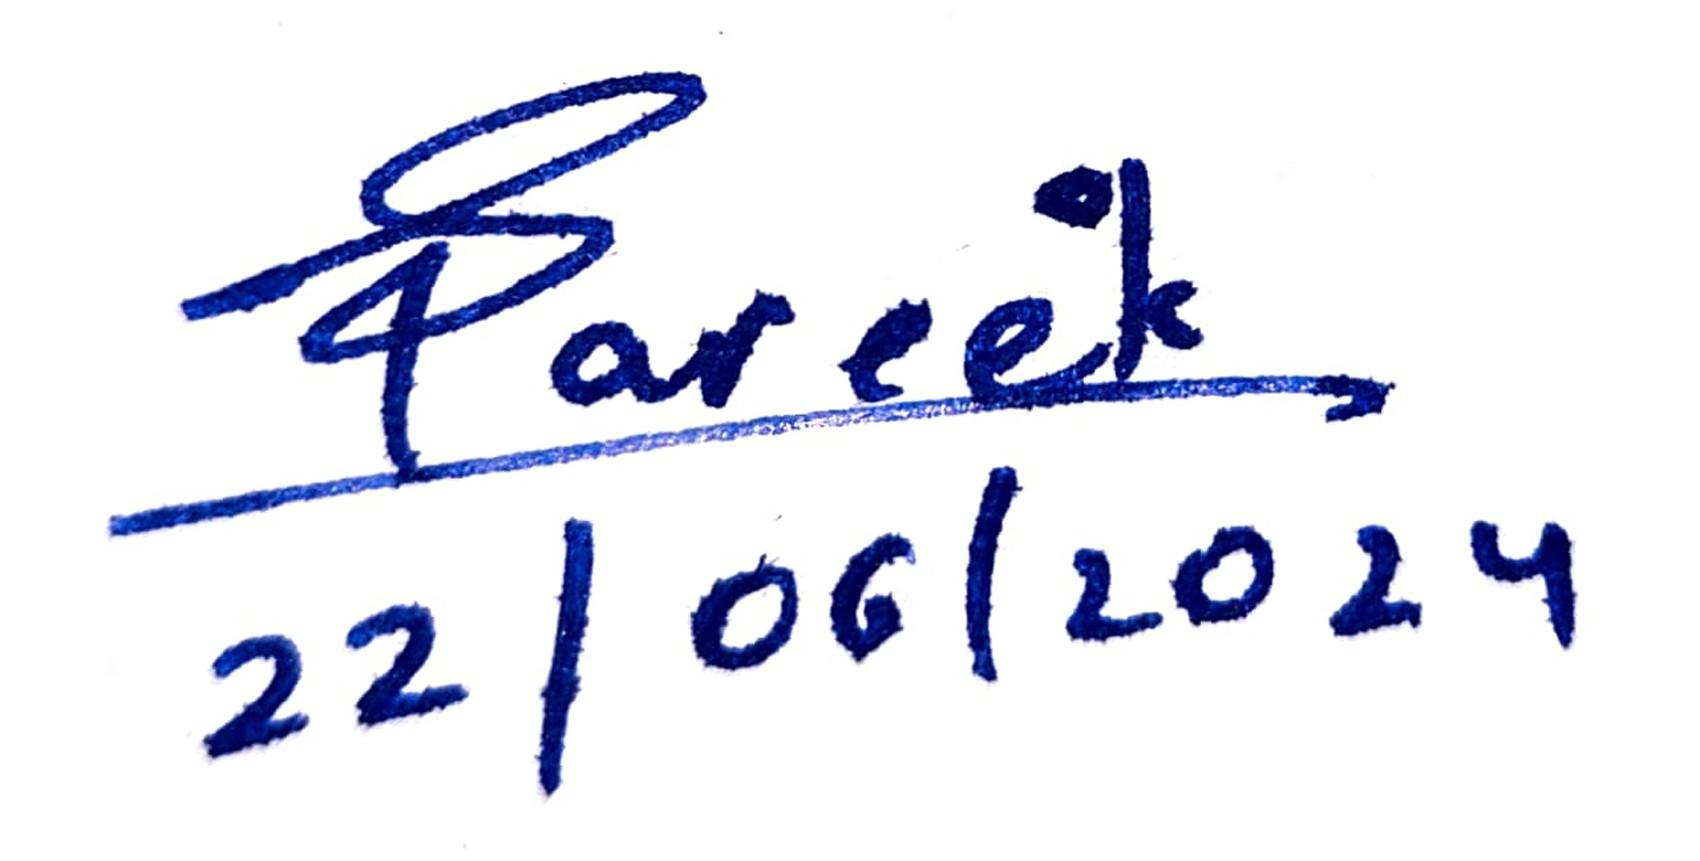 Pareek
22/06/2024